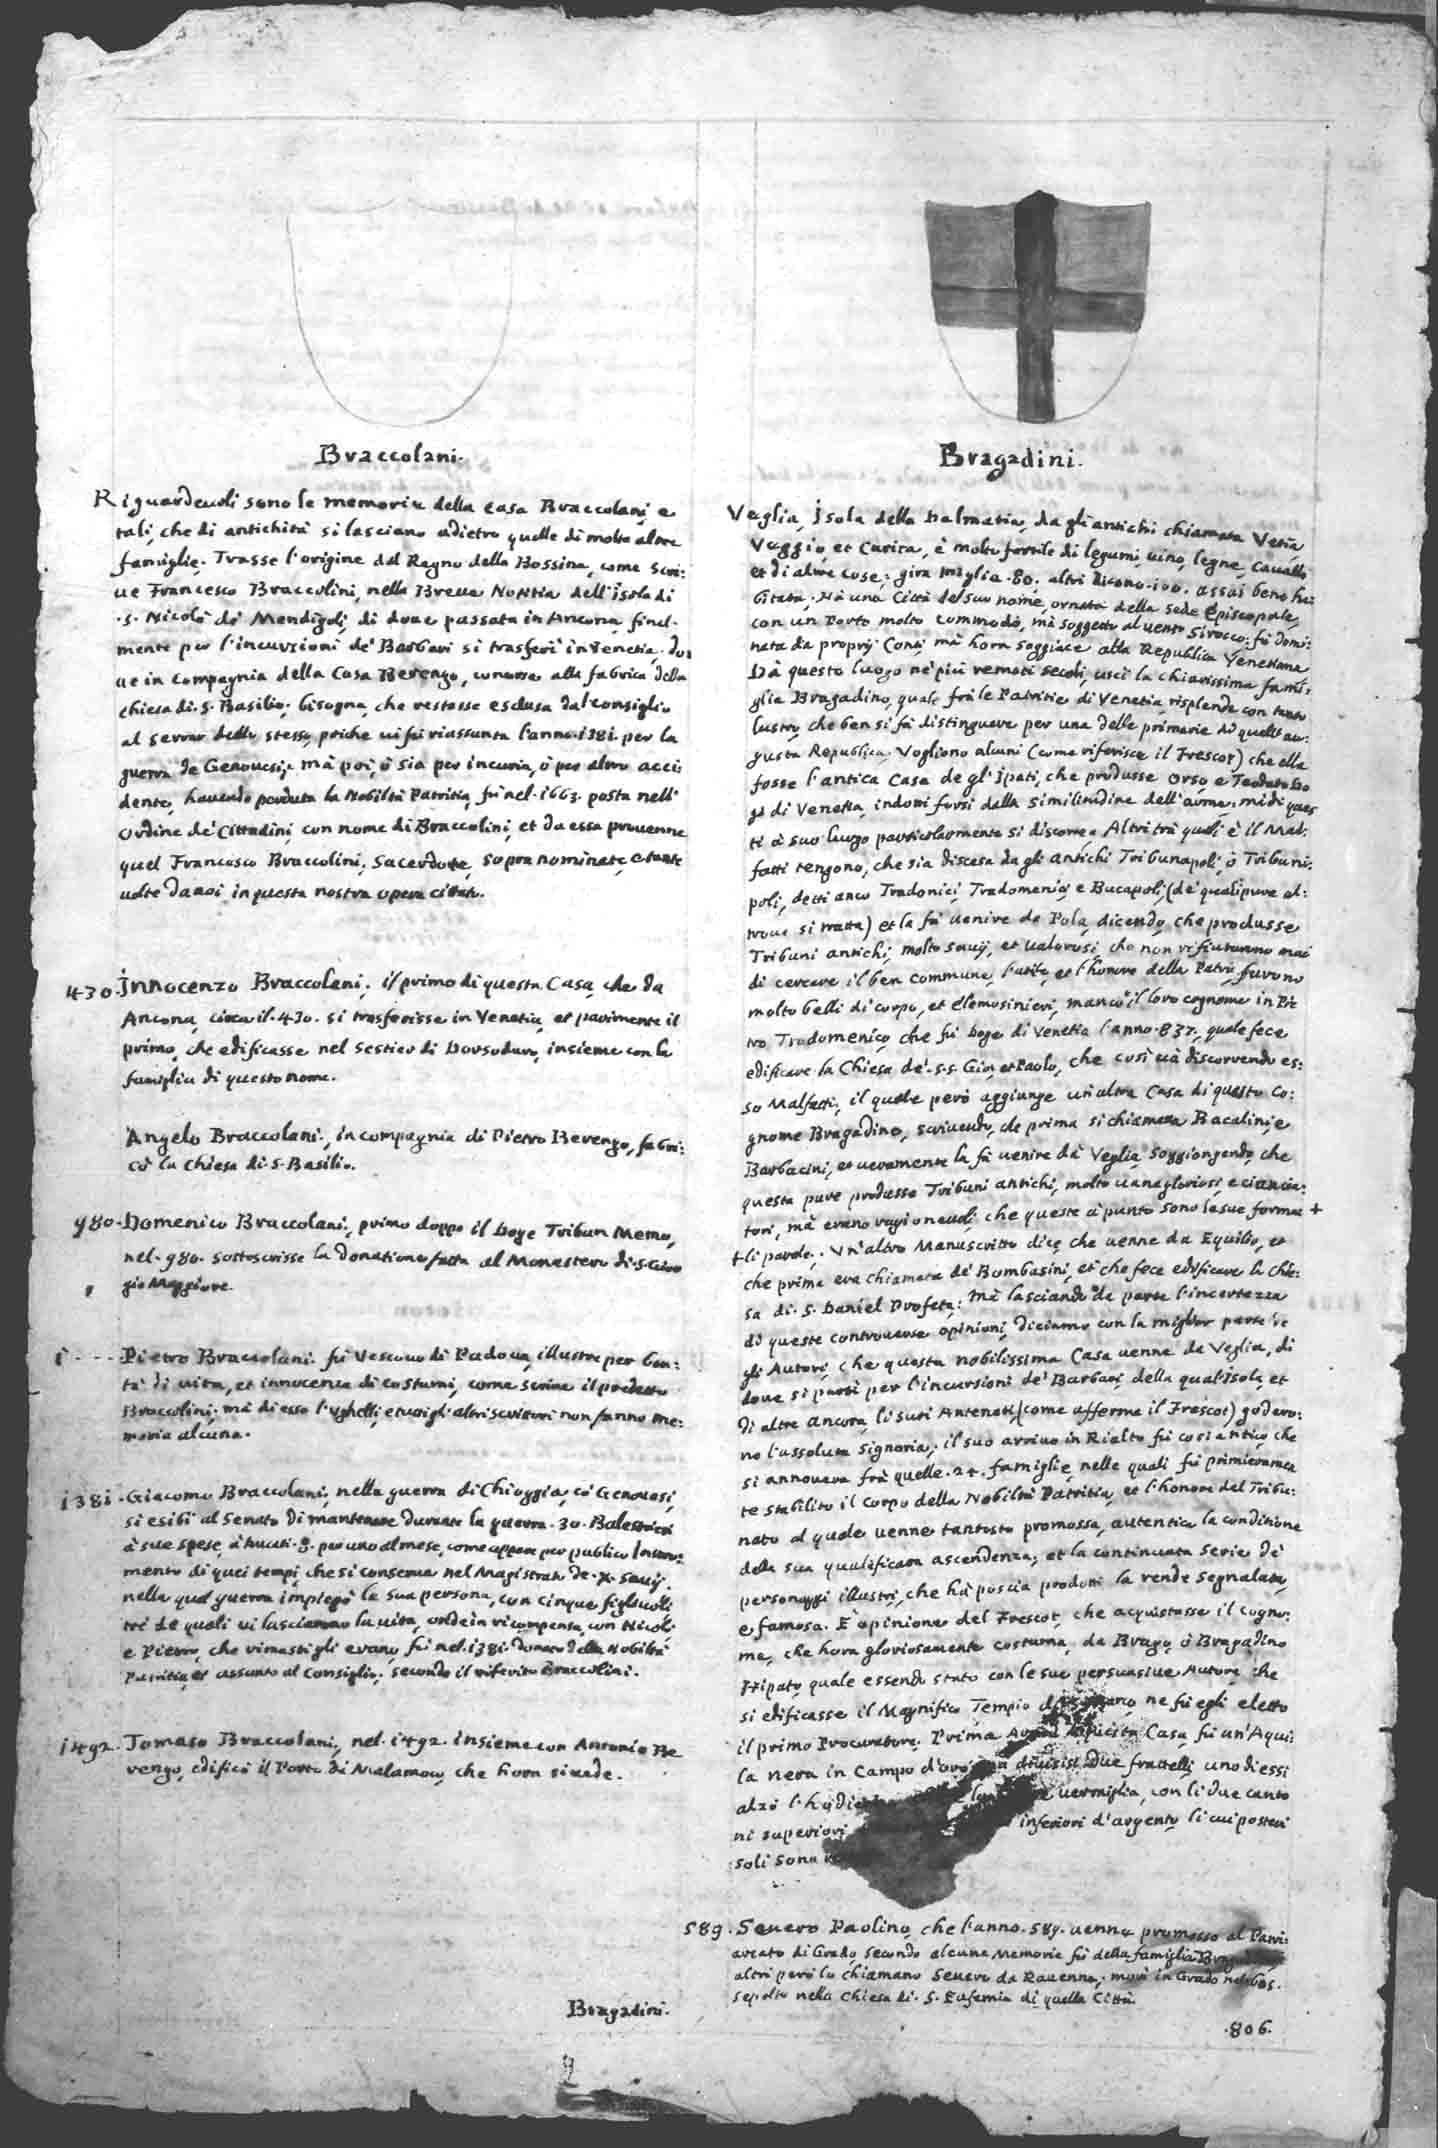 Braccolani.
Riguardeuoli sono le memorie della casa Braccolani, e
tali, che di antichità si lasciano adietro quelle di molte altre
famiglie. Trasse l'origine dal Regno della Bossina, come scri:
ue Francesco Braccolini, nella Breue Notitia dell'Isola di
.S. Nicolò de' Mendigoli, di doue passata in Ancona, final-
mente per l'incursioni de' Barbari si trasferì in Venetia, do:
ue in compagnia della Casa Berengo, concorse alla fabrica della
chiesa di .S. Basilio. bisogna, che restasse esclusa dal consiglio
al serrar dello stesso, poiche ui fù riassunta l'anno .1381. per la
guerra de Genouesi, mà poi, ò sia per incuria, ò per altro acci:
dente, hauendo perduta la Nobiltà Patritia, fù nel .1663. posta nell'
ordine de' Cittadini, con nome di Braccolini, et da essa prouenne
quel Francesco Braccolini, Sacerdote, sopranominato, e tante
uolte da noi in questa nostra opera citato.
430. Innocenzo Braccolani, il primo di questa Casa, che da
Ancona, circa il .430. si trasferisse in Venetia, et parimente il
primo, che edificasse nel sestier di Dorsoduro, insieme con la
famiglia di questo nome.
Angelo Braccolani, in compagnia di Pietro Berengo, fabri:
cò la Chiesa di .S. Basilio.
980. Domenico Braccolani, primo doppo il Doge Tribun Memo,
nel .980. sottoscrisse la donatione fatta al Monastero di .S. Gior
gio Maggiore.
Pietro Braccolani fù Vescouo di Padoua, illustre per bon:
tà di uita, et innocenza di costumi, come scriue il predetto
Braccolini; mà di esso l'Vghelli, e tutti gl'altri scrittori non fanno me:
moria alcuna.
1381. Giacomo Braccolani, nella guerra di Chioggia, co' Genouesi,
si esibì al Senato di mantenere durante la guerra .30. Balestrieri
à sue spese, à ducati .8. per uno al mese, come appare per publico Instru:
mento di quei tempi, che si conserua nel Magistrato de .X. Sauij.
nella qual guerra impiegò la sua persona, con cinque figliuoli
tre de quali ui lasciarono la uita, onde in ricompensa, con Nicolò
e Pietro, che rimasti gli erano, fù nel .1381. donato della Nobiltà
Patritia, et assunto al Consiglio, secondo il riferito Braccolini.
1492. Tomaso Braccolani, nel .1492. insieme con Antonio Be
rengo, edificò il Porto di Malamoco, che hora si uede.
Bragadini.
Bragadini.
Veglia, Isola della Dalmatia, da gli antichi chiamata Vetia
Veggio, et Curica, è molto fertile di legumi, uino, legne, Caualli
et di altre cose; gira miglia .80. altri dicono .100. assai bene ha:
bitata. Hà una Città del suo nome, ornata della sede Episcopale,
con un Porto molto commodo, mà soggetto al uento Sirocco; fù domi:
nata da proprij Conti, mà hora soggiace alla Republica Venetiana
Dà questo luogo ne' più remoti secoli, uscì la chiarissima fami:
glia Bragadino, quale frà le Patritie di Venetia, risplende con tanto
lustro, che ben si fà distinguere per una delle primarie di quell'au:
gusta Republica. Vogliono alcuni (come riferisce il Frescot) che ella
fosse l'antica Casa de gl'Ipati, che produsse Orso, e Teodato Do
gi di Venetia, indotti forsi dalla similitudine dell'arma, mà di ques
ti à suo luogo particolarmente si discorre. Altri trà quali è il Mal:
fatti tengono, che sia discesa da gli antichi Tribunapoli, ò Tribuni:
poli, detti anco Tradonici, Tradomenici, e Bucapoli, (de' quali pure al:
troue si tratta) et la fà uenire da Pola, dicendo, che produsse
Tribuni antichi, molto sauij, et ualorosi, che non rifiutarono mai
di cercare il ben commune, l'utile, et l'honore della Patria, furono
molto belli di corpo, et elemosinieri, mancò il loro cognome in Pie
tro Tradomenico, che fù Doge di Venetia l'anno .837. quale fece
edificare la Chiesa de' .S.S. Gio: et Paolo, che così và discorrendo es:
so Malfatti, il quale però aggiunge un'altra Casa di questo co:
gnome Bragadino, scriuendo, che prima si chiamata Bacalini, e
Barbacini, et ueramente la fà uenire dà Veglia, soggiongendo, che
questa pure produsse Tribuni antichi, molto uanagloriosi, e ciancia:
tori, mà erano ragioneuoli, che queste à punto sono le sue formali +
+ li parole. Vn'altro Manuscritto dice, che uenne da Equilio, et
che prima era chiamata de' Bombasini, et che fece edificare la Chie:
sa di .S. Daniel Profeta; mà lasciando da parte l'incertezza
di queste controuerse opinioni, diciamo con la miglior parte de
gli Autori, che questa nobilissima Casa uenne da Veglia, di
doue si partì per l'incursioni de' Barbari, della qual'Isola, et
di altre ancora, li suoi Antenati, (come afferma il Frescot) godero:
no l'assoluta Signoria; il suo arriuo in Rialto fù così antico, che
si annouera frà quelle .24. famiglie, nelle quali fù primieramen
te stabilito il corpo della Nobiltà Patritia, et l'honore del Tribu:
nato al quale uenne tantosto promossa, autentica la conditione
della sua qualificata ascendenza; et la continuata serie de'
personaggi illustri, che hà poscia prodotti la rende segnalata,
e famosa. È opinione del Frescot, che acquistasse il cogno:
me, che hora gloriosamente costuma, da Brago, ò Bragadino
Hipato, quale essendo stato con le sue persuasiue Autore che
si edificasse il Magnifico Tempio di S. Marco, ne fù egli eletto
il primo Procuratore. Prima Arma di questa Casa fù un'Aqui
la nera in Campo d'oro, mà diuisisi due fratelli, uno di essi
alzò l'hodierna uermiglia, con li due canto
ni superiori inferiori d'argento, li cui posteri
soli sono
589. Seuero Paolino, che l'anno .589. uenne promosso al Patri:
arcato di Grado, secondo alcune Memorie fù della famiglia Bragadini,
altri però lo chiamano Seuero da Rauenna, morì in Grado nel 605.
sepolto nella Chiesa di .S. Eufemia di quella Città.
.806.